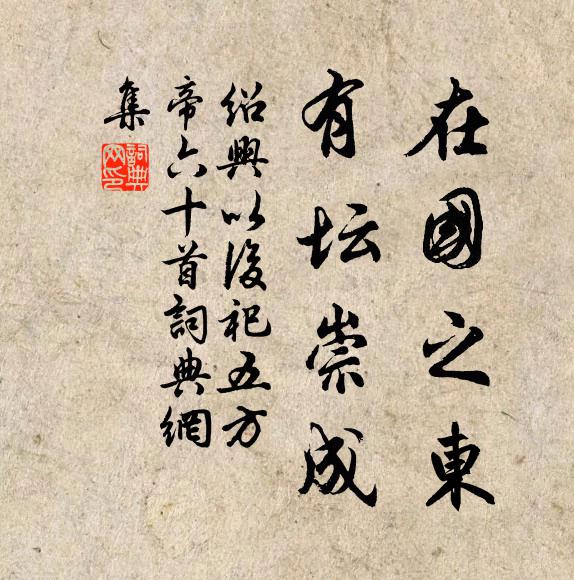 在國之東
有坛崇成
绍興以後祀五方
帝六十首詞典網
集
詞典
网印